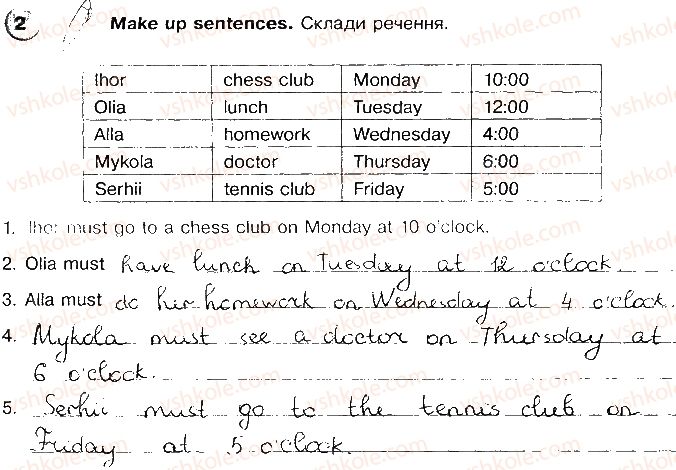 2 Make up sentences. Склади речення.
Ihor chess club Monday 10:00
Olia lunch Tuesday 12:00
Alla homework Wednesday 4:00
Mykola doctor Thursday 6:00
Serhii tennis club Friday 5:00
1. Ihor must go to a chess club on Monday at 10 o'clock.
2. Olia must have lunch on Tuesday at 12 o'clock.
3. Alla must do her homework on Wednesday at 4 o'clock.
4. Mykola must see a doctor on Thursday at
6 o'clock.
5. Serhii must go to the tennis club on
Friday at 5 o'clock.
vshkole.com